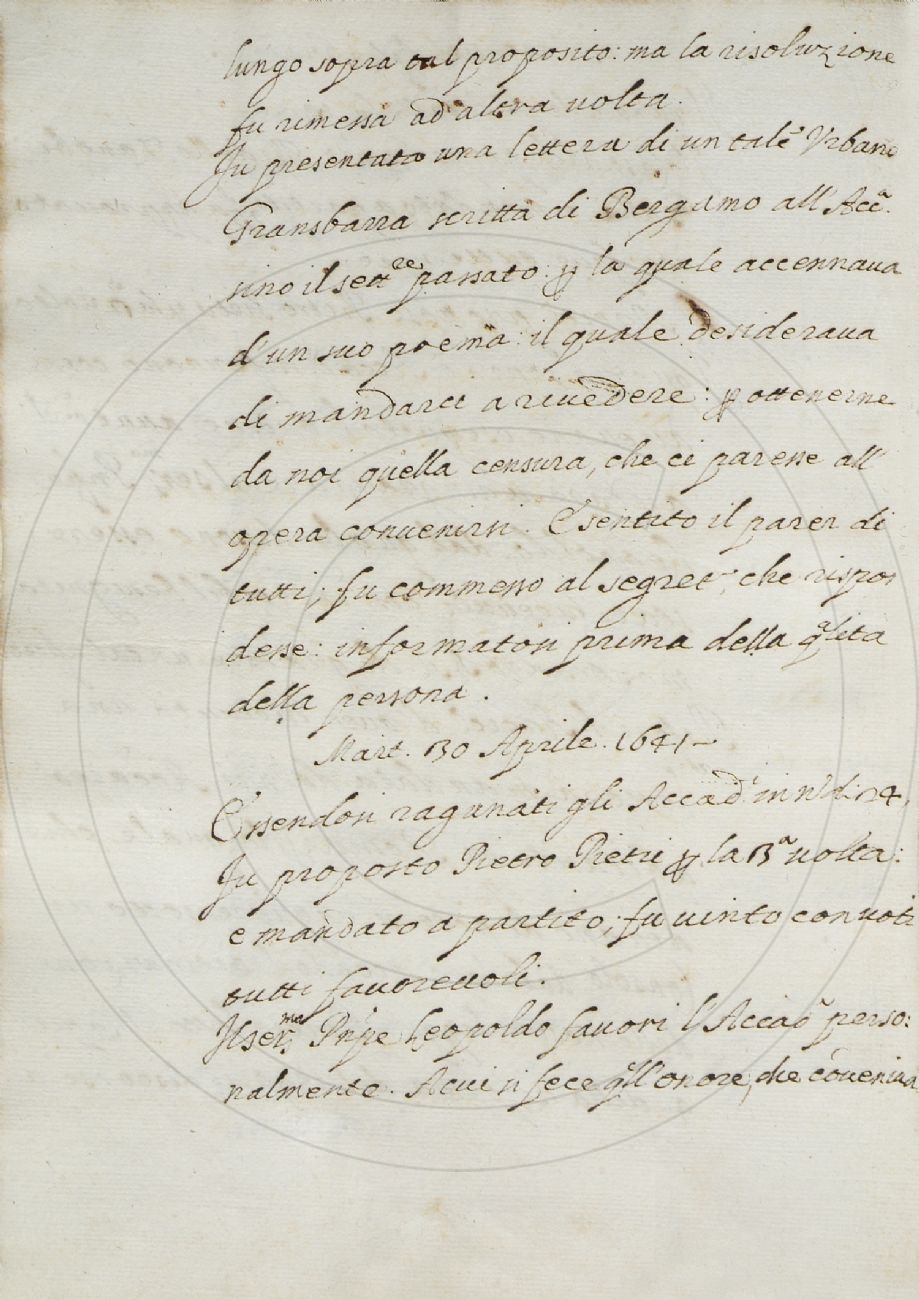 lungo sopra tal proposito: ma la risoluzione
fu rimessa ad altra volta.
Fu presentata una lettera di un tale Vrbano
Gransbarra scritta di Bergamo all'Acc.ª
sino il sett.re passato: ꝑ la quale accennaua
d'un suo poema: il quale desideraua
di mandarci a riuedere: ꝑ ottenerne
da noi quella censura, che ci paresse all'
opera conuenirsi. E sentito il parer di
tutti; fu commesso al segret.º, che rispon
desse: informatosi prima della q.alità
della persona.
Mart. 30 Aprile. 1641
Essendosi ragunati gli Accad.i in n.º di 24,
Fu proposto Pietro Pietri ꝑ la 3.ª uolta:
e mandato a partito; fu uinto con uoti
tutti fauoreuoli.
Il ser.mo Prīpe Leopoldo fauorì l'Accad.ª perso:
nalmente. A cui si fece q.ll'onore, che cōueniua